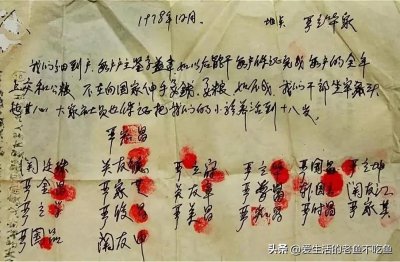 1978年12月 地点 严立华家
我们分田到户每户户主签字盖章如以后能干每户保证完成每户的全年
上交和公粮不在向国家伸手要钱要粮如不成我们干部作牢杀头
也干心大家社员也保证把我们的小孩养活到十八岁
严宏昌
关廷珠 关友德 严立富 严立华 严国昌 严立坤
严金昌 严家芝 关友章 严学昌 韩国云 关友江
严立学 严俊昌 严美昌 严付昌 严家其
严国品 关友申
头条 @爱生活的老鱼不吃鱼